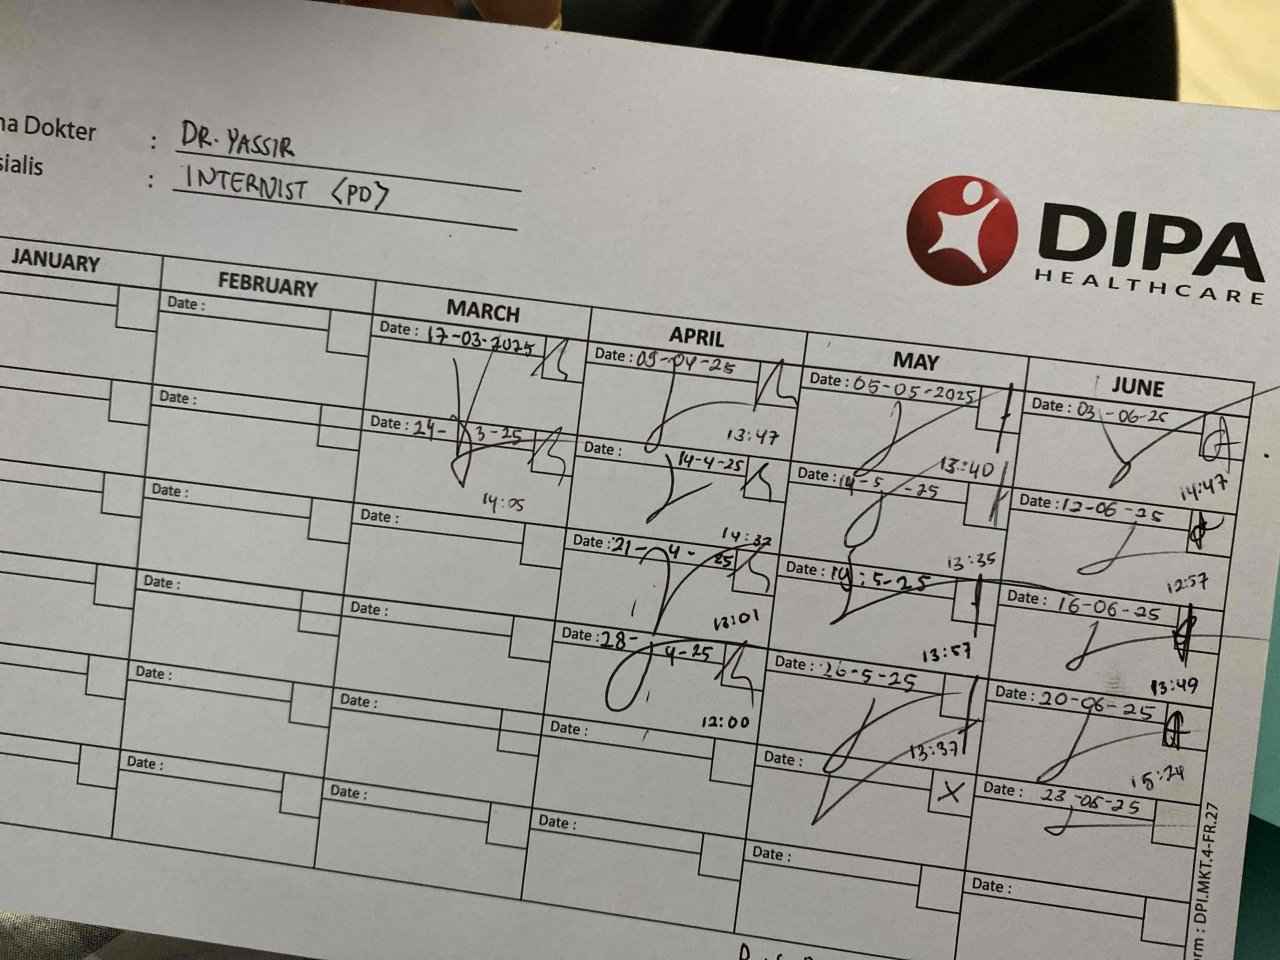 na Dokter : DR. YASSIR
sialis : INTERNIST <PD>
DIPA
HEALTHCARE
JANUARY FEBRUARY MARCH APRIL MAY JUNE
Date : Date : 17-03-2025 Date : 09-04-25 Date : 05-05-2025 Date : 03-06-25
13:47 13:40 14:47
Date : Date : 24-3-25 Date : 14-4-25 Date : 14-5-25 Date : 12-06-25
14:05 14:32 13:35 12:57
Date : Date : Date : 21-4-25 Date : 19-5-25 Date : 16-06-25
13:01 13:57 13:49
Date : Date : Date : 28-4-25 Date : 26-5-25 Date : 20-06-25
12:00 13:37 15:24
Date : Date : Date : Date : X Date : 23-06-25
Date : Date : Date : Date : Date :
orm : DPI.MKT.4-FR.27